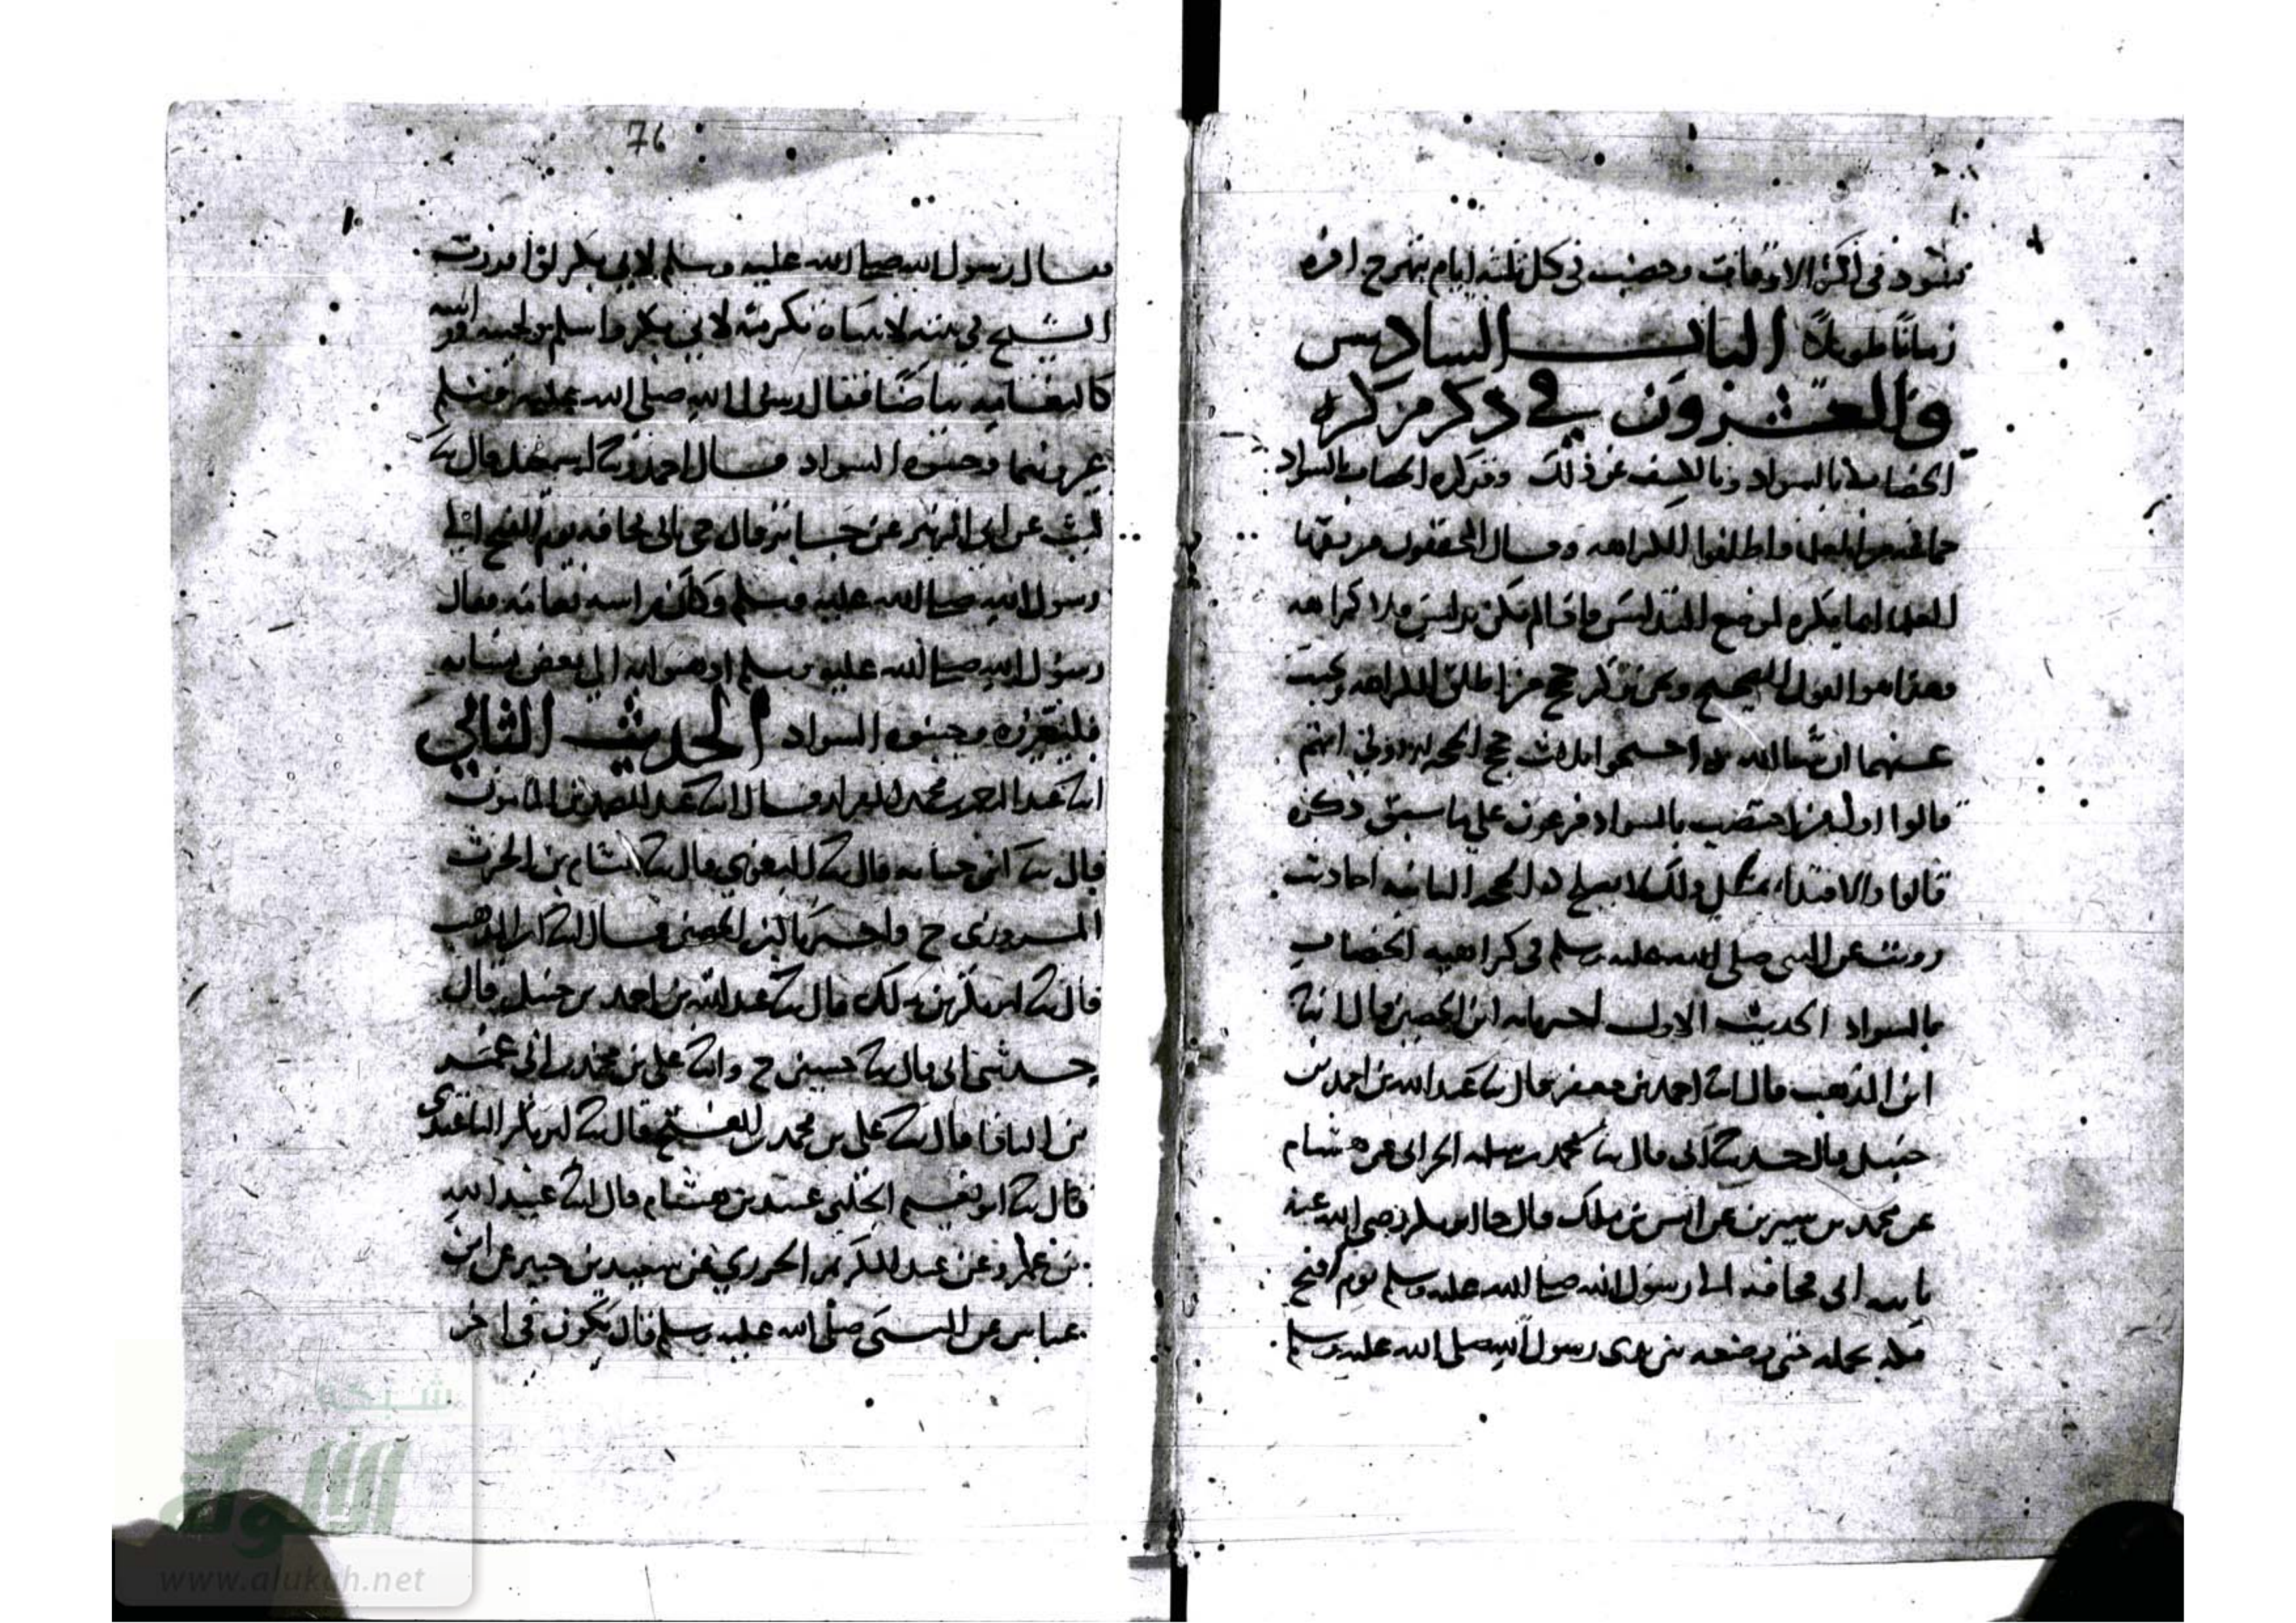 تسود في أكثر الاوقات وخضب في كل ثلثة ايام بنهرح اخره
زمانًا طويلاً الباب السادس
والعشرون في ذكر من كره
الخضاب بالسواد وبالكشف عن ذلك وقد كره الخضاب بالسواد
جماعة من العلماء واطلقوا الكراهه وقال المحققون من بقية
العلماء انما يكره لموضع التدليس فاذا لم يكن تدليس فلا كراهه
وهذا هو القول الصحيح ونحن نذكر حجج من اطلق الكراهه ونجيب
عنها ان شا الله احتجوا بثلاث حجج الحجه الاولى انهم
قالوا اول من اختضب بالسواد فرعون على ما سبق ذكره
قالوا والاقتداء بمثل ذلك لا يصلح الحجه الثانيه احاديث
رويت عن النبي صلى الله عليه وسلم في كراهيه الخضاب
بالسواد الحديث الاول اخبرنا ابن الحصين قال انبا
ابن المذهب قال انا احمد بن جعفر قال ثنا عبد الله بن احمد بن
حنبل قال حدثنا ابي قال ثنا محمد بن سلمه الحراني عن هشام
عن محمد بن سيرين عن انس بن ملك قال جا ابو بكر رضي الله عنه
بابيه ابي قحافه الى رسول الله صلى الله عليه وسلم يوم فتح
مكه يحمله حتى وضعه بين يدي رسول الله صلى الله عليه وسلم
76
فقال رسول الله صلى الله عليه وسلم لابي بكر لو اقررت
الشيخ في بيته لاتيناه تكرمة لابي بكر فاسلم ولحيته
كالثغامه بياضًا فقال رسول الله صلى الله عليه وسلم
غيروهما وجنبوه السواد قال احمد وثنا اسمعيل قال ثنا
ليث عن ابي الزبير عن جابر قال جي بابي قحافه يوم الفتح الى
رسول الله صلى الله عليه وسلم وكان راسه ثغامة فقال
رسول الله صلى الله عليه وسلم اذهبوا به الى بعض نسايه
فليغيره وجنبوه السواد الحديث الثاني
انا عبد الرحمن بن محمد القزاز قال انا عبد الصمد بن المامون
قال ثنا ابن حبابه قال ثنا البغوي قال ثنا هشام بن الحرث
المروزي ح واخبرنا ابن الحصين قال انا ابن المذهب
قال ثنا ابو بكر بن ملك قال ثنا عبد الله بن احمد بن حنبل قال
حدثني ابي قال ثنا حسين ح وانا علي بن محمد بن ابي عمر
قال ثنا علي بن محمد قال ثنا ابو بكر الباغندي
قال ثنا ابو نعيم الحلبي عبيد بن هشام قال انا عبيد الله
بن عمرو عن عبد الكريم الجزري عن سعيد بن جبير عن ابن
عباس عن النبي صلى الله عليه وسلم قال يكون في اخر
شبكة
الألوكة
www.alukah.net